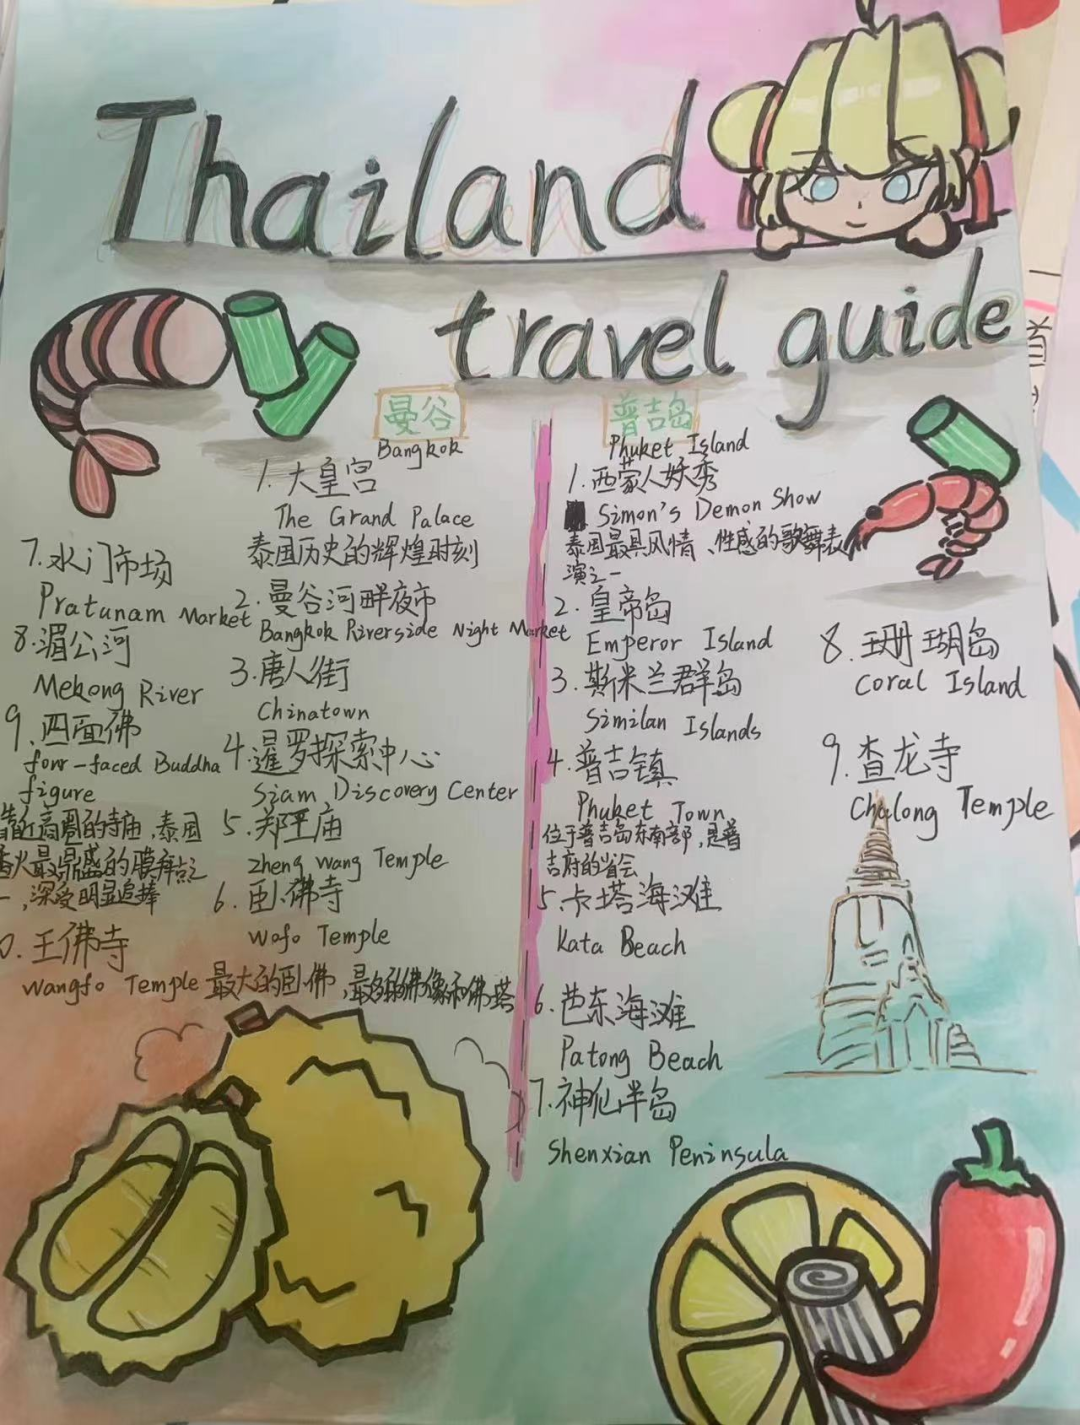 Thailand
travel guide
曼谷
Bangkok
1. 大皇宫
The Grand Palace
泰国历史的辉煌时刻
2. 曼谷河畔夜市
Bangkok Riverside Night Market
3. 唐人街
Chinatown
4. 暹罗探索中心
Siam Discovery Center
5. 郑王庙
Zheng Wang Temple
6. 卧佛寺
Wofo Temple
最大的卧佛,最多的佛像和佛塔
7. 水门市场
Pratunam Market
8. 湄公河
Mekong River
9. 四面佛
four-faced Buddha
figure
靠近商圈的寺庙,泰国
香火最鼎盛的膜拜点之
一,深受明星追捧
0. 王佛寺
Wangfo Temple
普吉岛
Phuket Island
1. 西蒙人妖秀
Simon's Demon Show
泰国最具风情、性感的歌舞表
演之一
2. 皇帝岛
Emperor Island
3. 斯米兰群岛
Similan Islands
4. 普吉镇
Phuket Town
位于普吉岛东南部,是普
吉府的省会
5. 卡塔海滩
Kata Beach
6. 芭东海滩
Patong Beach
7. 神仙半岛
Shenxian Peninsula
8. 珊瑚岛
Coral Island
9. 查龙寺
Chalong Temple
首